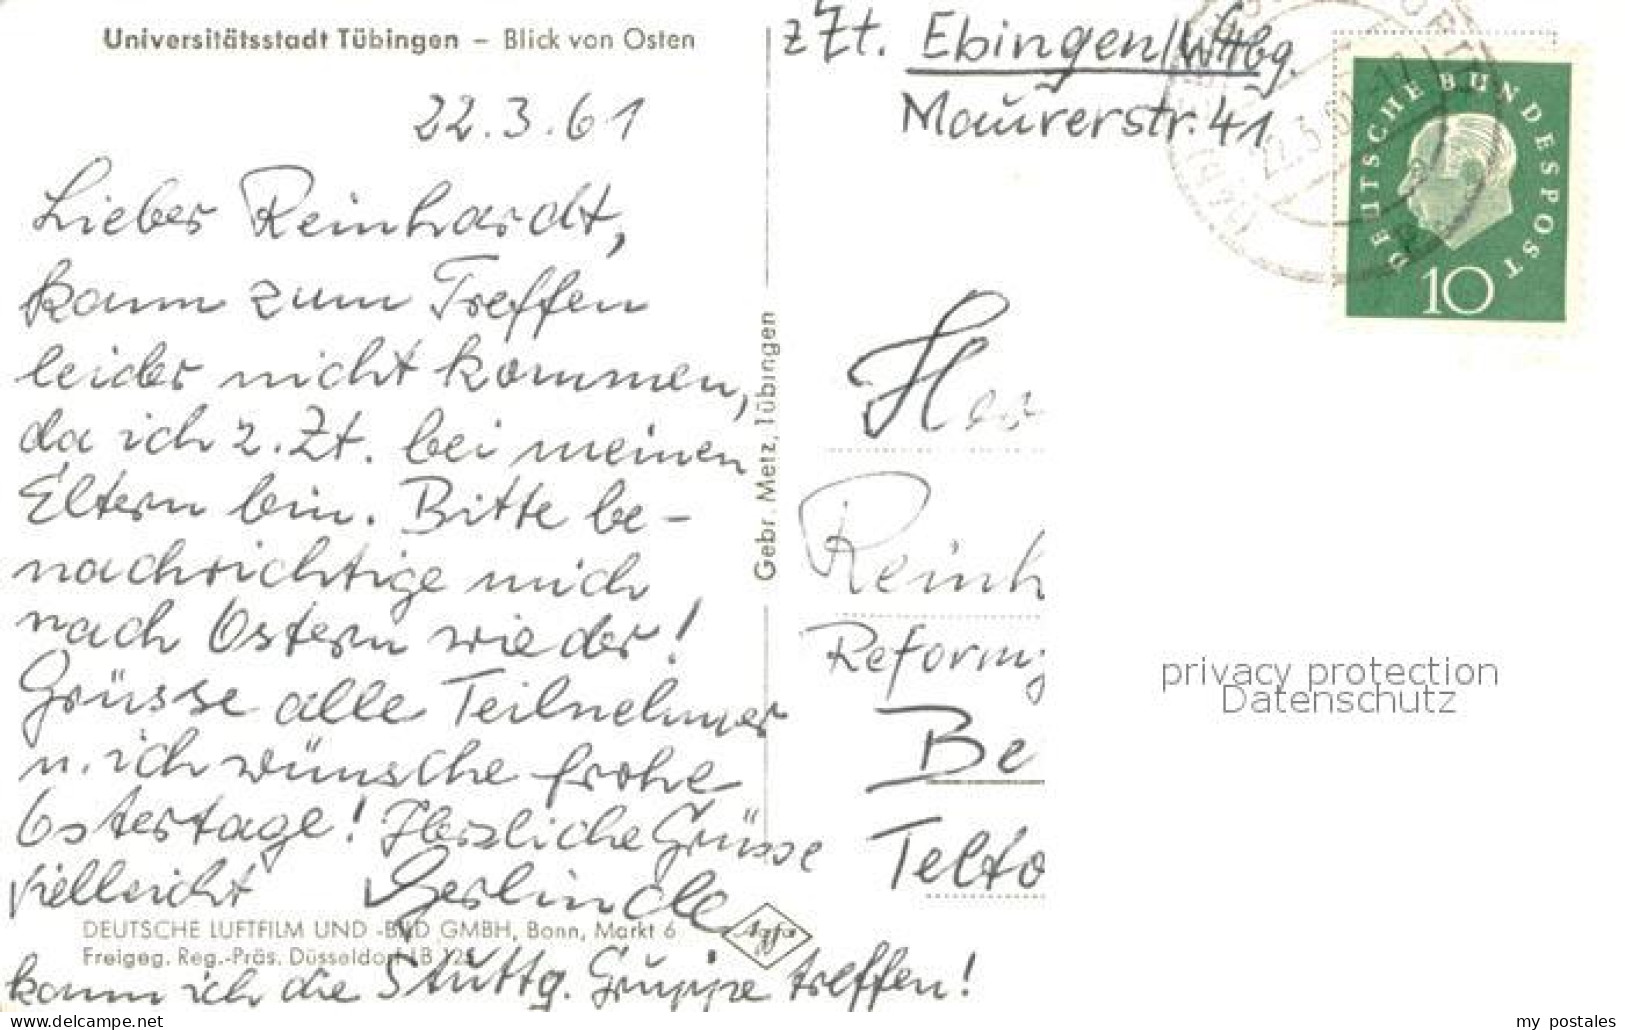 Universitätsstadt Tübingen – Blick von Osten
22.3.61
Lieber Reinhardt,
kann zum Treffen
leider nicht kommen,
da ich z.Zt. bei meinen
Eltern bin. Bitte be-
nachrichtige mich
nach Ostern wieder!
Grüsse alle Teilnehmer
u. ich wünsche frohe
Ostertage! Herzliche Grüsse
Vielleicht Gerlinde
kann ich die Stuttg. Gruppe treffen!
DEUTSCHE LUFTFILM UND -BILD GMBH, Bonn, Markt 6
Freigeg. Reg.-Präs. Düsseldorf LB 125
Agfa
Gebr. Metz, Tübingen
z Zt. Ebingen/Wttbg.
Maurerstr. 41
DEUTSCHE BUNDESPOST
10
Reinh
Reform
Be
Telto
privacy protection
Datenschutz
www.delcampe.net
my_postales